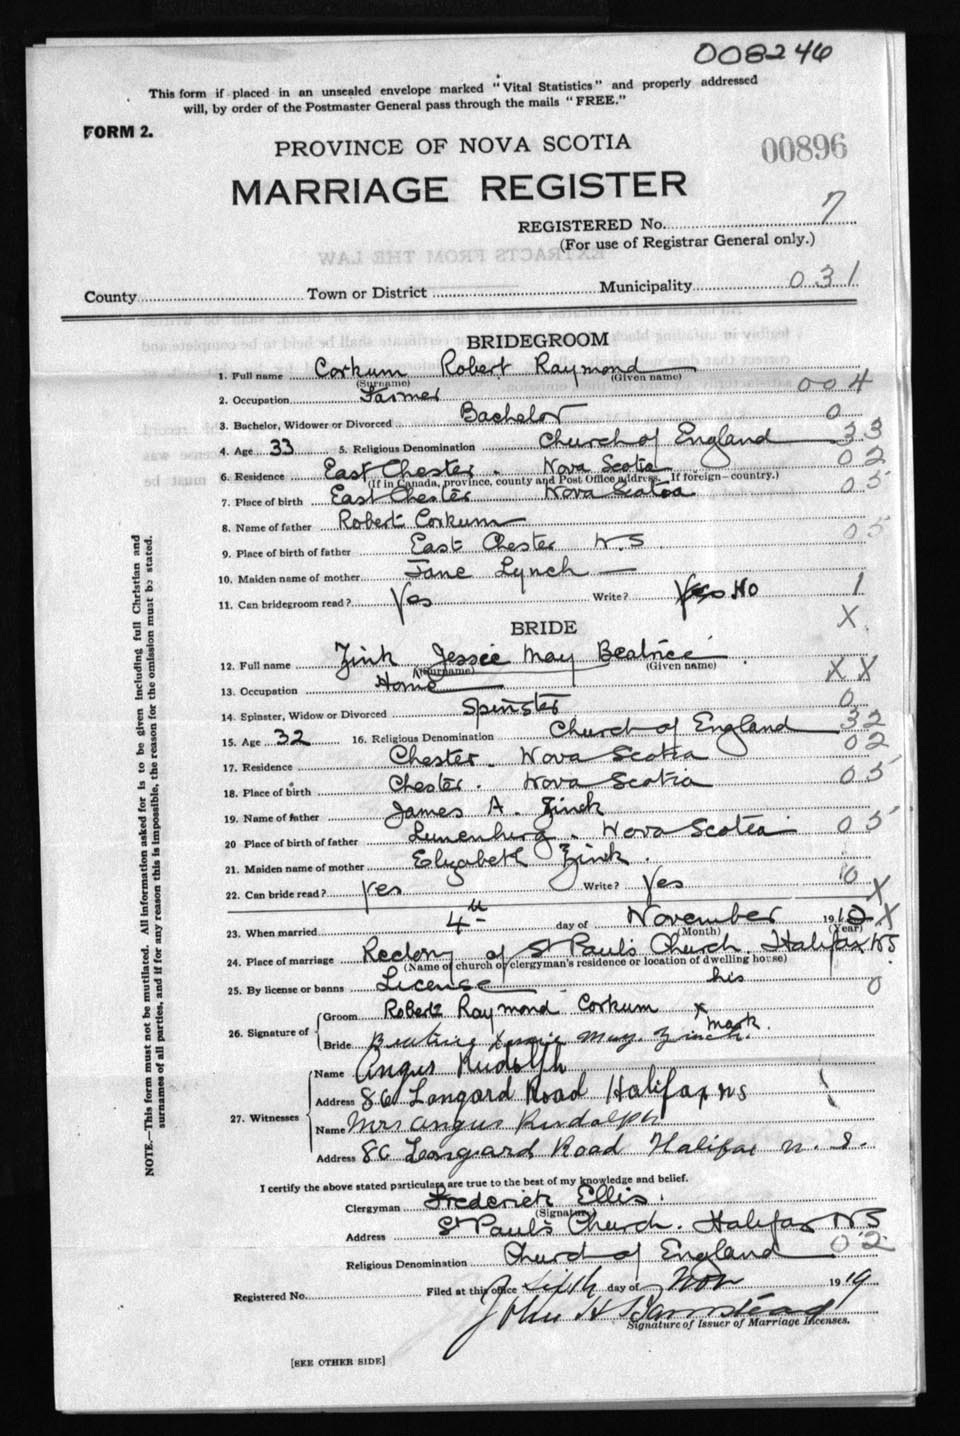 008246
This form if placed in an unsealed envelope marked "Vital Statistics" and properly addressed
will, by order of the Postmaster General pass through the mails "FREE."
FORM 2.
PROVINCE OF NOVA SCOTIA
00896
MARRIAGE REGISTER
REGISTERED No. 7
(For use of Registrar General only.)
EXTRACTS FROM THE LAW
County Town or District Municipality 031
BRIDEGROOM
1. Full name Corkum Robert Raymond
(Surname) (Given name)
2. Occupation Farmer 004
3. Bachelor, Widower or Divorced Bachelor 0
4. Age 33 5. Religious Denomination Church of England 33
6. Residence East Chester. Nova Scotia 02
(If in Canada, province, county and Post Office address. If foreign—country.)
7. Place of birth East Chester Nova Scotia 05
8. Name of father Robert Corkum
9. Place of birth of father East Chester N.S. 05
10. Maiden name of mother Jane Lynch
11. Can bridegroom read? Yes Write? Yes No 1
BRIDE X
12. Full name Zink Jessie May Beatrice
(Surname) (Given name)
13. Occupation Home XX
14. Spinster, Widow or Divorced Spinster 0
15. Age 32 16. Religious Denomination Church of England 32
17. Residence Chester. Nova Scotia 02
18. Place of birth Chester. Nova Scotia 05
19. Name of father James A. Zinck
20 Place of birth of father Lunenburg. Nova Scotia 05
21. Maiden name of mother Elizabeth Zink.
22. Can bride read? Yes Write? Yes 0
X
23. When married 4th day of November 191 X
(Month) (Year)
24. Place of marriage Rectory of St Paul's Church. Halifax NS
(Name of church or clergyman's residence or location of dwelling house)
25. By license or banns License 0
his
26. Signature of Groom Robert Raymond Corkum X
mark.
Bride Beatrice Jessie May Zinck.
27. Witnesses
Name Angus Rudolph
Address 86 Longard Road Halifax NS
Name Mrs Angus Rudolph
Address 86 Longard Road Halifax N. S.
I certify the above stated particulars are true to the best of my knowledge and belief.
Clergyman Frederick Ellis.
(Signature)
Address St Paul's Church. Halifax NS
Religious Denomination Church of England 02
Registered No. Filed at this office Sixth day of Nov 1919
John H
Signature of Issuer of Marriage Licenses.
[SEE OTHER SIDE]
NOTE.—This form must not be mutilated. All information asked for is to be given including full Christian and
surnames of all parties, and if for any reason this is impossible, the reason for the omission must be stated.